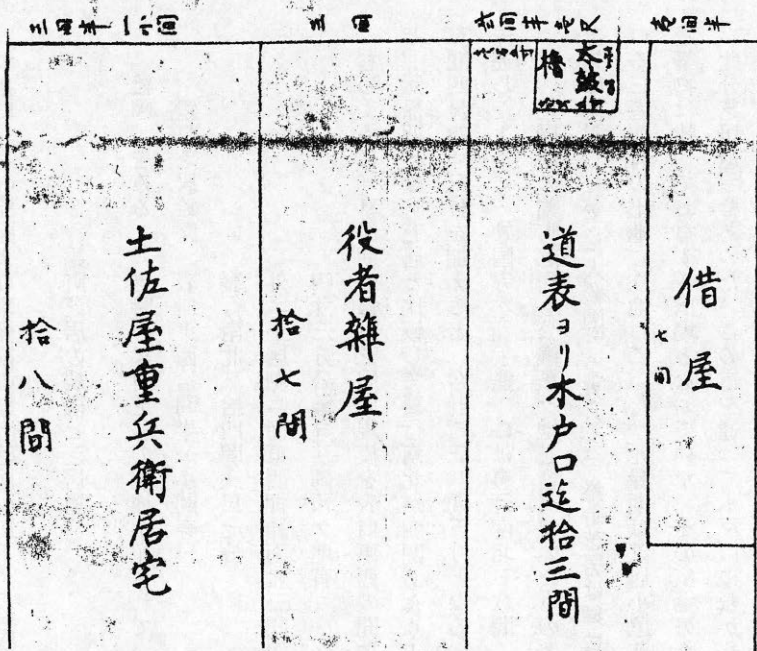 壱間半
借屋
七間
弐間半壱尺
太鼓
櫓
道表ヨリ木戸口迄拾三間
三間
役者雑屋
拾七間
三間半一小間
土佐屋重兵衛居宅
拾八間